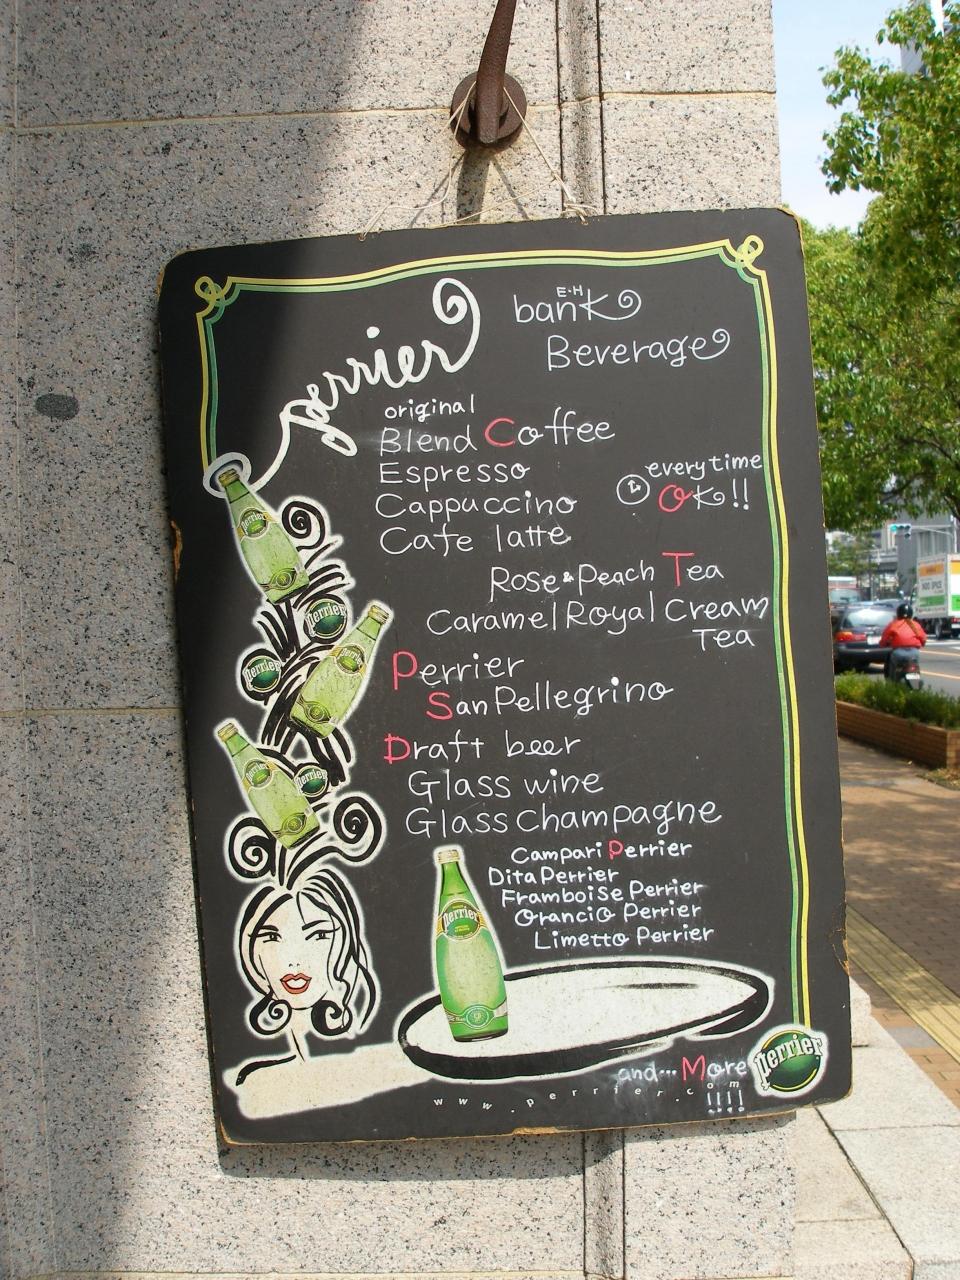 perrier
E·H
bank
Beverage
original
Blend Coffee
Espresso
Cappuccino
Cafe latte
everytime
OK!!
Rose&Peach Tea
Caramel Royal Cream
Tea
Perrier
San Pellegrino
Draft beer
Glass wine
Glass champagne
Campari Perrier
Dita Perrier
Framboise Perrier
Orancio Perrier
Limetto Perrier
and... More
!!!!
www.perrier.com
perrier
perrier
perrier
perrier
Perrier
Perrier
Perrier
Perrier